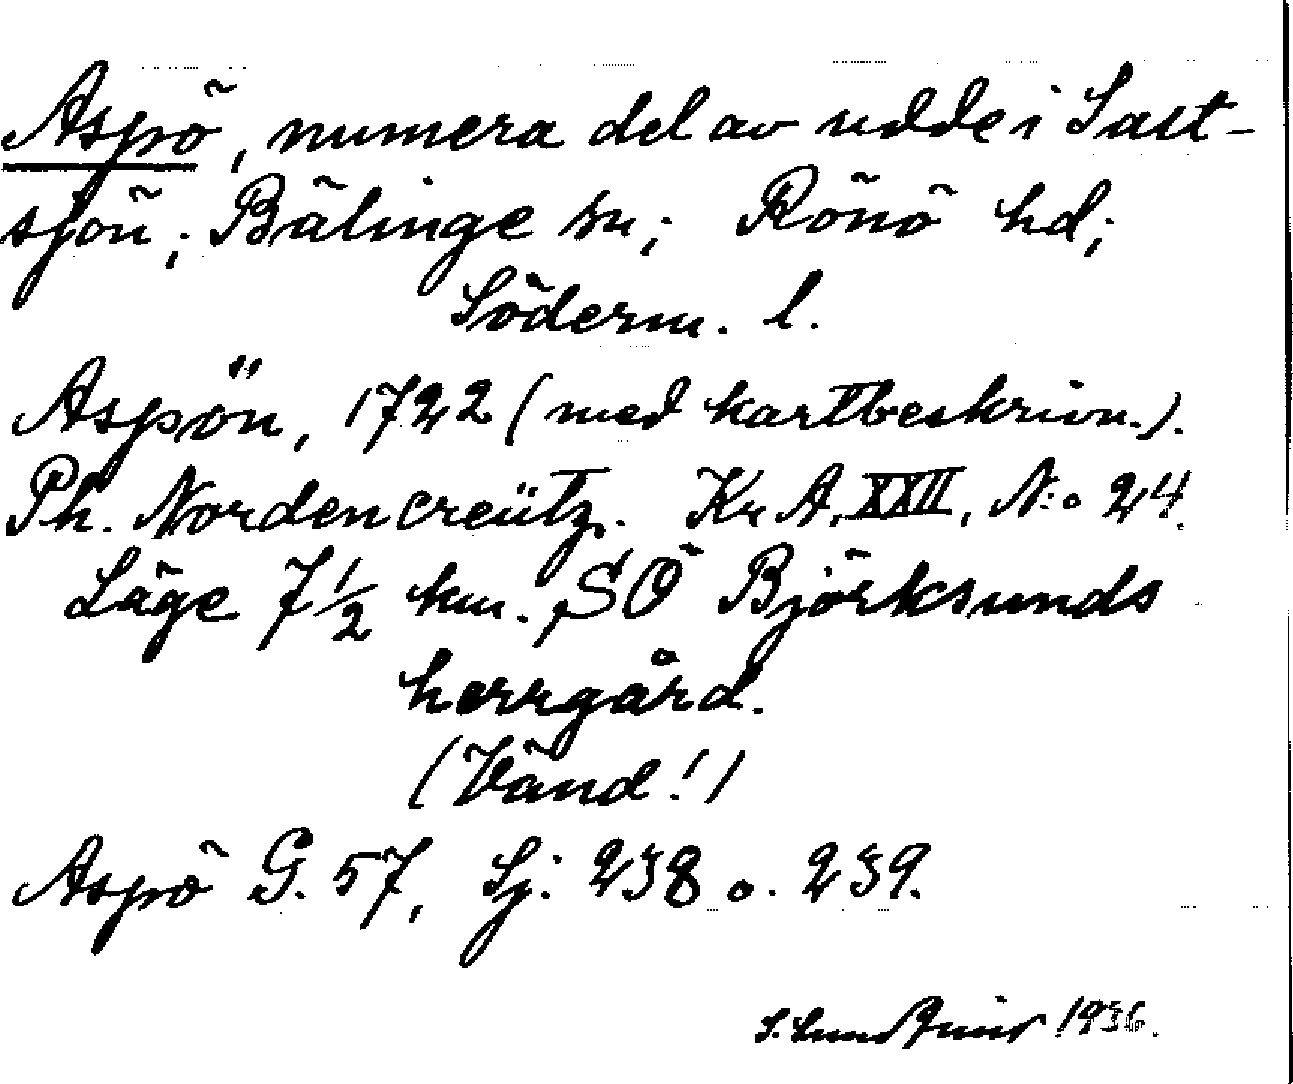 Aspö, numera del av udde i Salt-
sjön; Bälinge sn; Rönö hd;
Söderm. l.
Aspön, 1722 (med kartbeskrivn.).
Ph. Nordencreütz. Kr A, XXII, N:o 24.
Läge 7 1/2 km. SÖ Björksunds
herrgård.
(Vänd!)
Aspö G. 57, Sj: 238 o. 239.
1936.